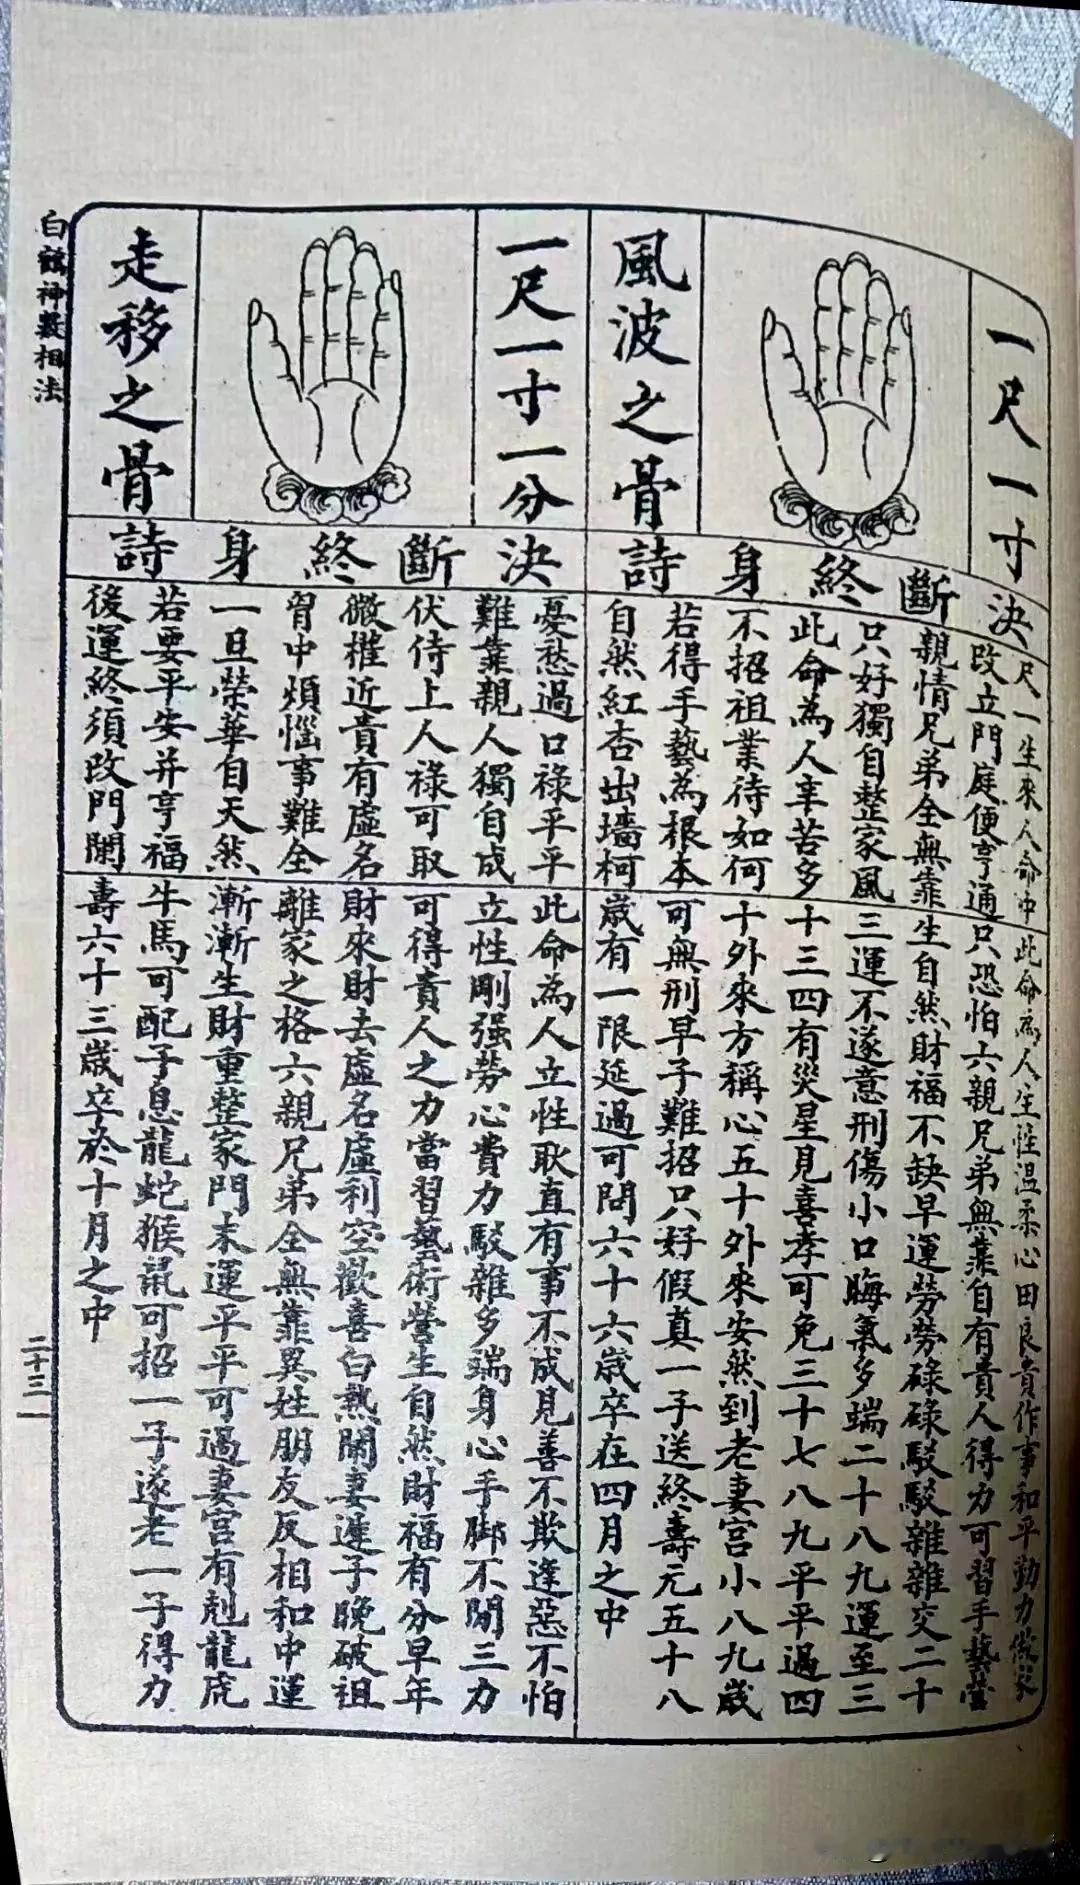 一尺一寸
風波之骨
決斷終身詩
尺一生來人命中
改立門庭便亨通
親情兄弟全無靠
只好獨自整家風
此命為人辛苦多
不招祖業待如何
若得手藝為根本
自然紅杏出墻柯
此命為人生性温柔心田良貴作事和平勤力做家
只恐怕六親兄弟無靠自有貴人得力可習手藝營
生自然財福不缺早運勞勞碌碌駁駁雜雜交二十
三運不遂意刑傷小口晦氣多端二十八九運至三
十三四有災星見喜孝可免三十七八九平平過四
十外來方稱心五十外來安然到老妻宮小八九歲
可無刑早子難招只好假真一子送終壽元五十八
歲有一限延過可問六十六歲卒在四月之中
一尺一寸一分
走移之骨
決斷終身詩
憂愁過口祿平平
難靠親人獨自成
伏侍上人祿可取
微權近貴有虛名
胷中煩惱事難全
一旦榮華自天然
若要平安并亨福
後運終須改門閑
此命為人立性耿直有事不成見善不欺逢惡不怕
立性剛强勞心費力駁雜多端身心手脚不閒三力
可得貴人之力當習藝術營生自然財福有分早年
財來財去虛名虛利空歡喜白熱鬧妻遲子晚破祖
離家之格六親兄弟全無靠異姓朋友反相和中運
漸漸生財重整家門末運平平可過妻宮有剋龍虎
牛馬可配子息龍蛇猴鼠可招一子遂老一子得力
壽六十三歲卒於十月之中
白鶴神數相法
二十三